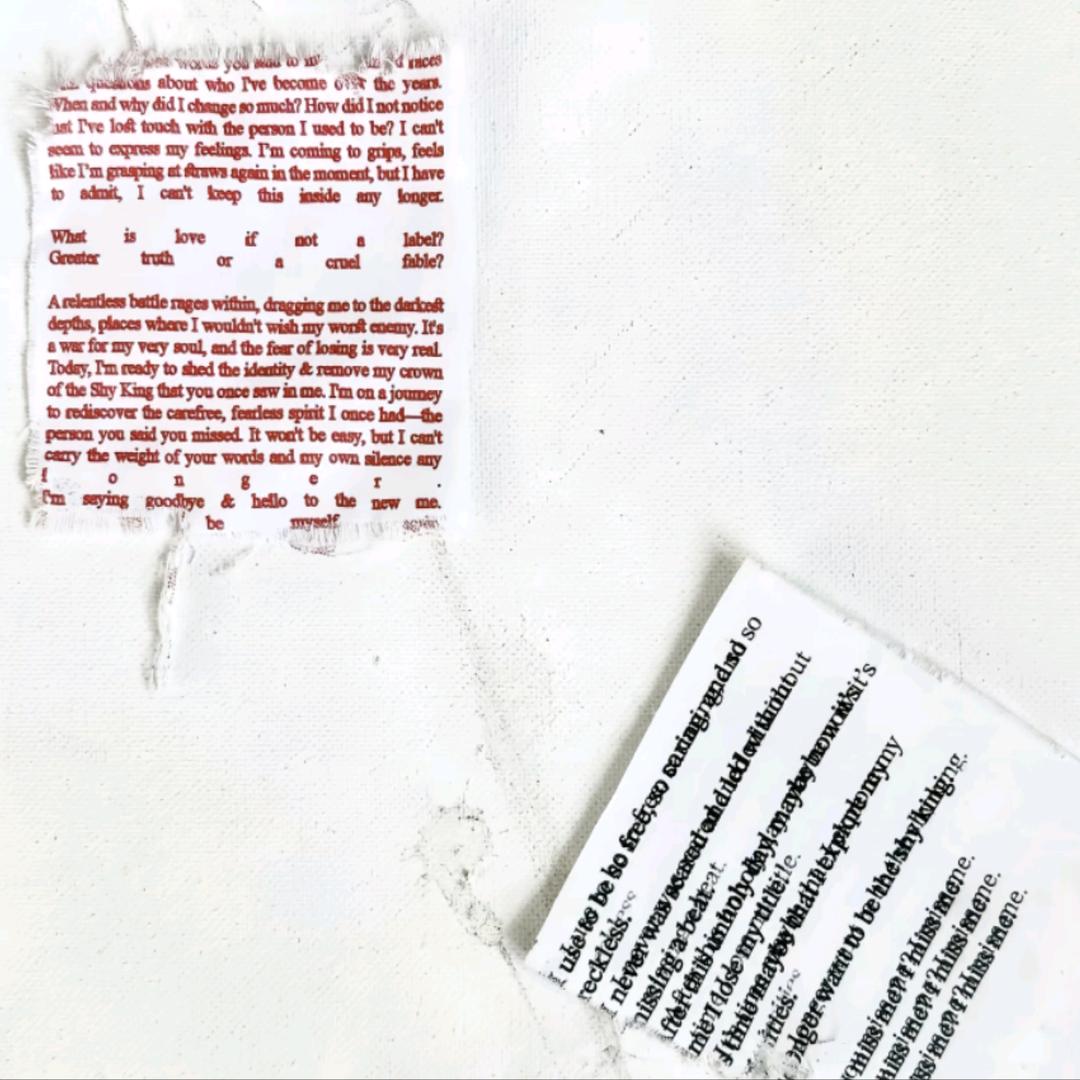 words you said to
questions about who I've become over the years.
When and why did I change so much? How did I not notice
I've lost touch with the person I used to be? I can't
seem to express my feelings. I'm coming to grips, feels
like I'm grasping at straws again in the moment, but I have
to admit, I can't keep this inside any longer.
What is love if not a label?
Greater truth or a cruel fable?
A relentless battle rages within, dragging me to the darkest
depths, places where I wouldn't wish my worst enemy. It's
a war for my very soul, and the fear of losing is very real.
Today, I'm ready to shed the identity & remove my crown
of the Shy King that you once saw in me. I'm on a journey
to rediscover the carefree, fearless spirit I once had—the
person you said you missed. It won't be easy, but I can't
carry the weight of your words and my own silence any
l o n g e r .
I'm saying goodbye & hello to the new me.
be myself again
I used to be so free, so caring and so
reckless.
I never was scared and lied without
missing a beat.
unholy day maybe now it's
title.
maybe that'll explain my
want to be the shy king.
miss me? I miss me.
miss me? I miss me.
miss me? I miss me.